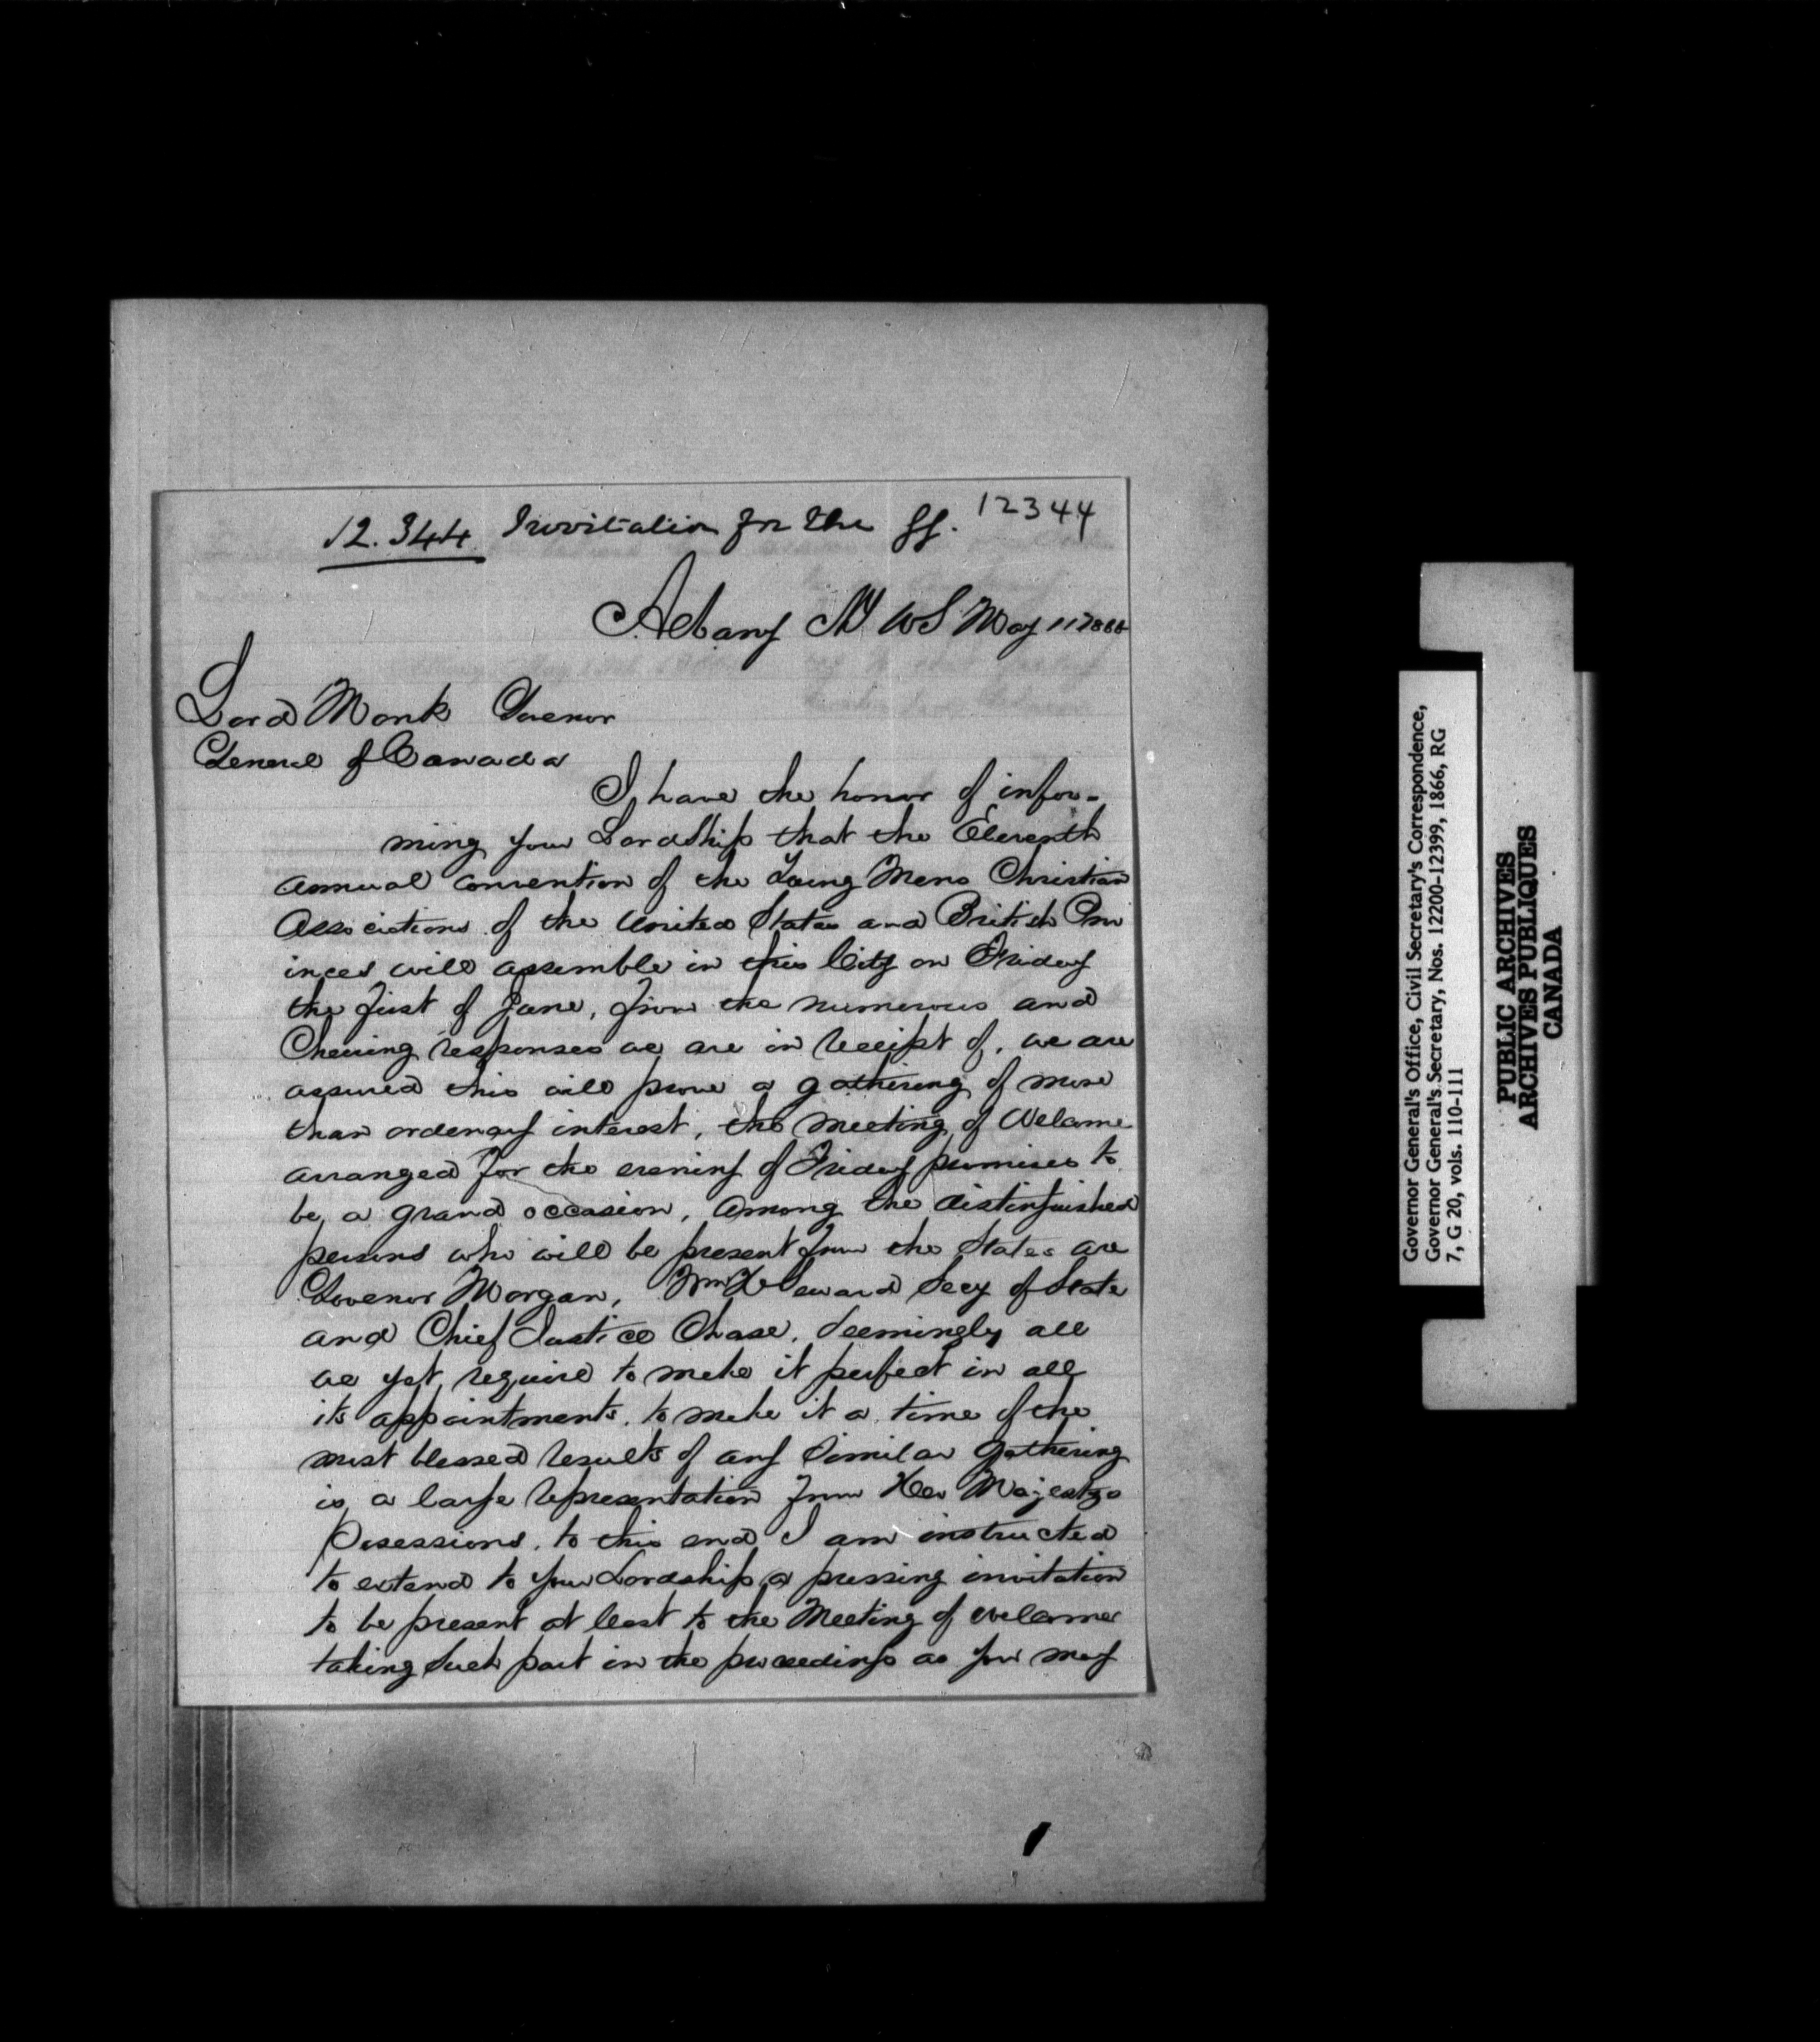 12.344 Invitation for the GG. 12344
Albany NY US May 11 1866
Lord Monk Govenor
General of Canada
I have the honor of infor-
ming your Lordship that the Eleventh
annual convention of the Young Mens Christian
Associations of the United States and British Prov
inces will assemble in this City on Friday
the first of June, from the numerous and
Cheering responses we are in receipt of, we are
assured this will prove a gathering of more
than ordenary interest, the meeting of Welcome
arranged for the evening of Friday promises to
be a grand occasion, Among the distinguished
persons who will be present from the States are
Govenor Morgan, Wm H Seward Secy of State
and Chief Justice Chase, Seemingly all
we yet require to make it perfect in all
its appointments, to make it a time of the
most blessed results of any Similar gathering
is a large representation from Her Majestys
Posessions, to this end I am instructed
to extend to your Lordship a pressing invitation
to be present at least to the Meeting of Welcome
taking Such part in the proceedings as you may
Governor General's Office, Civil Secretary's Correspondence,
Governor General's Secretary, Nos. 12200-12399, 1866, RG
7, G 20, vols. 110-111
PUBLIC ARCHIVES
ARCHIVES PUBLIQUES
CANADA